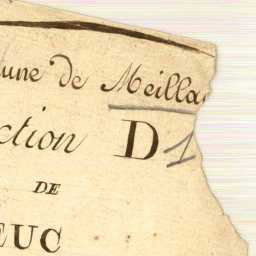 une de Meilla
ction D1
DE
EUC